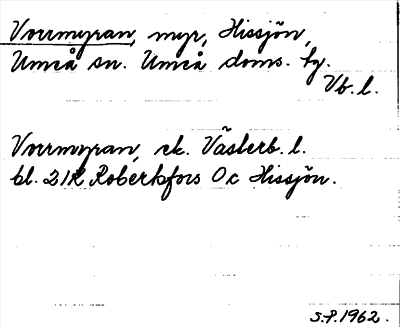 Vorrmyran, myr, Hissjön,
Umeå sn. Umeå doms. hg.
Vb. l.
Vorrmyran, ek. Västerb. l.
bl. 21K Robertsfors 0c Hissjön.
S.P. 1962.